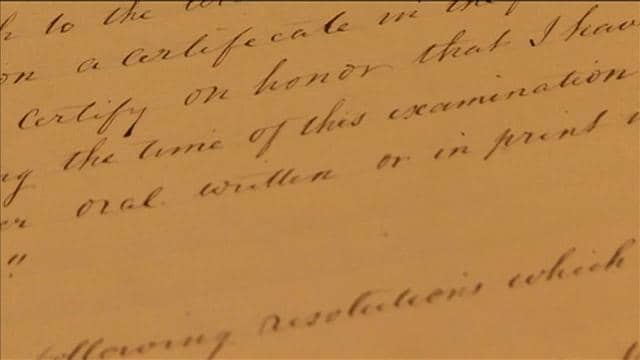 to the
on a certificate in the
certify on honor that I hav
the time of this examination
oral written or in print
"
ollowing resolutions which